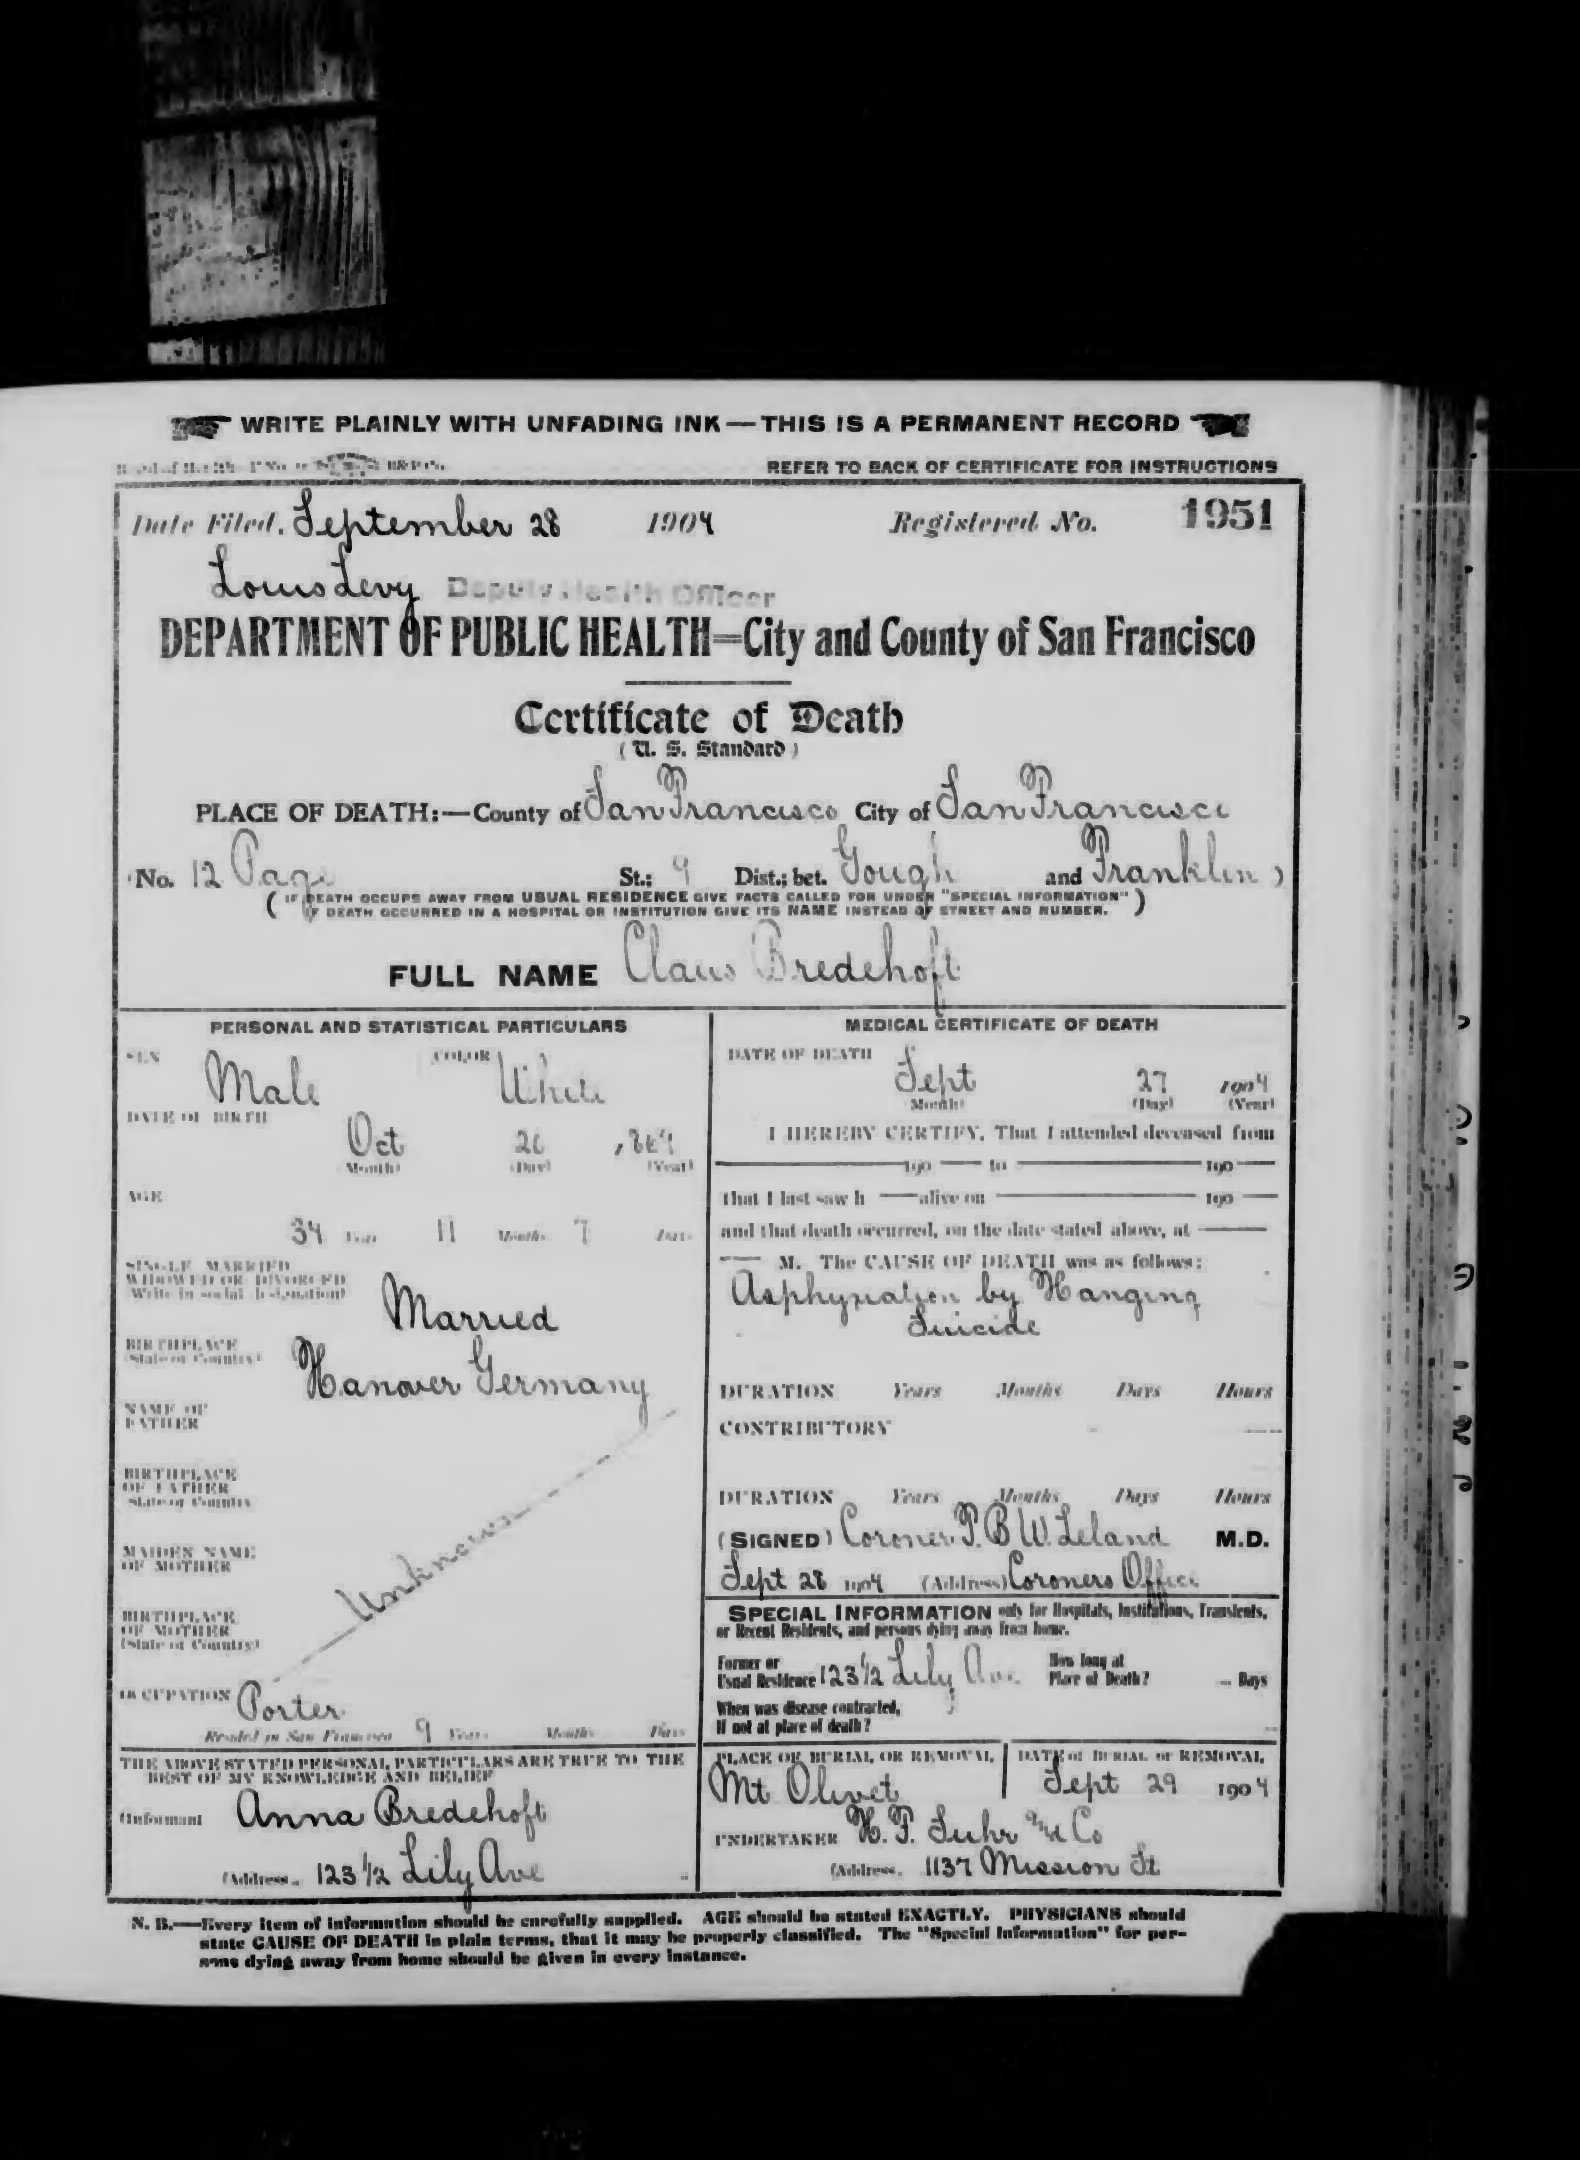 WRITE PLAINLY WITH UNFADING INK — THIS IS A PERMANENT RECORD
REFER TO BACK OF CERTIFICATE FOR INSTRUCTIONS
Date Filed, September 28 1904 Registered No. 1951
Louis Levy Deputy Health Officer
DEPARTMENT OF PUBLIC HEALTH=City and County of San Francisco
Certificate of Death
(U. S. Standard)
PLACE OF DEATH:—County of San Francisco City of San Francisco
(No. 12 Page St.; 9 Dist.; bet. Gough and Franklin )
( IF DEATH OCCURS AWAY FROM USUAL RESIDENCE GIVE FACTS CALLED FOR UNDER "SPECIAL INFORMATION" )
IF DEATH OCCURRED IN A HOSPITAL OR INSTITUTION GIVE ITS NAME INSTEAD OF STREET AND NUMBER.
FULL NAME Claus Bredehoft
PERSONAL AND STATISTICAL PARTICULARS
SEX Male COLOR White
DATE OF BIRTH
Oct 20
(Month) (Day) (Year)
AGE
34 Years 11 Months 7 Days
SINGLE, MARRIED
WIDOWED OR DIVORCED
(Write in social designation)
Married
BIRTHPLACE
(State or Country)
Hanover Germany
NAME OF
FATHER
BIRTHPLACE
OF FATHER
(State or Country)
MAIDEN NAME
OF MOTHER
Unknown
BIRTHPLACE
OF MOTHER
(State or Country)
OCCUPATION Porter
Resided in San Francisco 9 Years Months Days
THE ABOVE STATED PERSONAL PARTICULARS ARE TRUE TO THE
BEST OF MY KNOWLEDGE AND BELIEF
(Informant Anna Bredehoft
(Address. 123 1/2 Lily Ave
MEDICAL CERTIFICATE OF DEATH
DATE OF DEATH
Sept 27 1904
(Month) (Day) (Year)
I HEREBY CERTIFY, That I attended deceased from
190 to 190
that I last saw h alive on 190
and that death occurred, on the date stated above, at
M. The CAUSE OF DEATH was as follows:
Asphyxiation by Hanging
Suicide
DURATION Years Months Days Hours
CONTRIBUTORY
DURATION Years Months Days Hours
(SIGNED) Coroner T. B W. Leland M.D.
Sept 28 1904 (Address) Coroners Office
SPECIAL INFORMATION only for Hospitals, Institutions, Transients,
or Recent Residents, and persons dying away from home.
Former or
Usual Residence 123 1/2 Lily Ave.
How long at
Place of Death? Days
When was disease contracted,
If not at place of death?
PLACE OF BURIAL OR REMOVAL
Mt Olivet
DATE of BURIAL or REMOVAL
Sept 29 1904
UNDERTAKER H. F. Suhr and Co
(Address. 1137 Mission St
N. B.—Every item of information should be carefully supplied. AGE should be stated EXACTLY. PHYSICIANS should
state CAUSE OF DEATH in plain terms, that it may be properly classified. The "Special Information" for per-
sons dying away from home should be given in every instance.